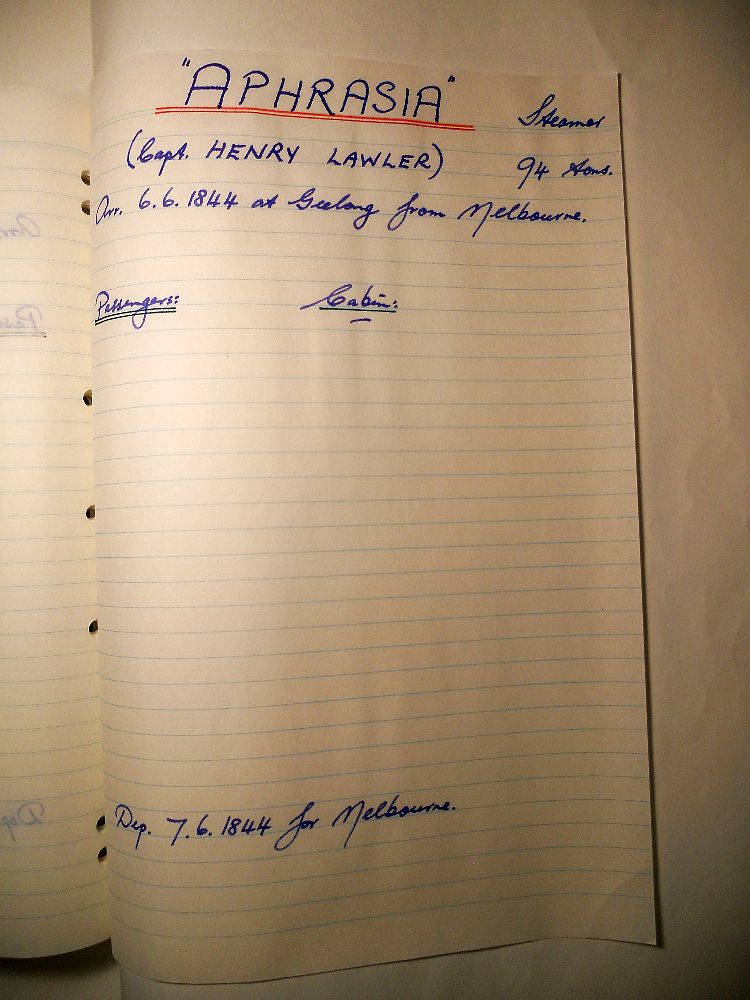 "APHRASIA"
Steamer
(Capt. HENRY LAWLER)
94 tons.
Arr. 6.6.1844 at Geelong from Melbourne.
Passengers: Cabin:
Dep. 7.6.1844 for Melbourne.